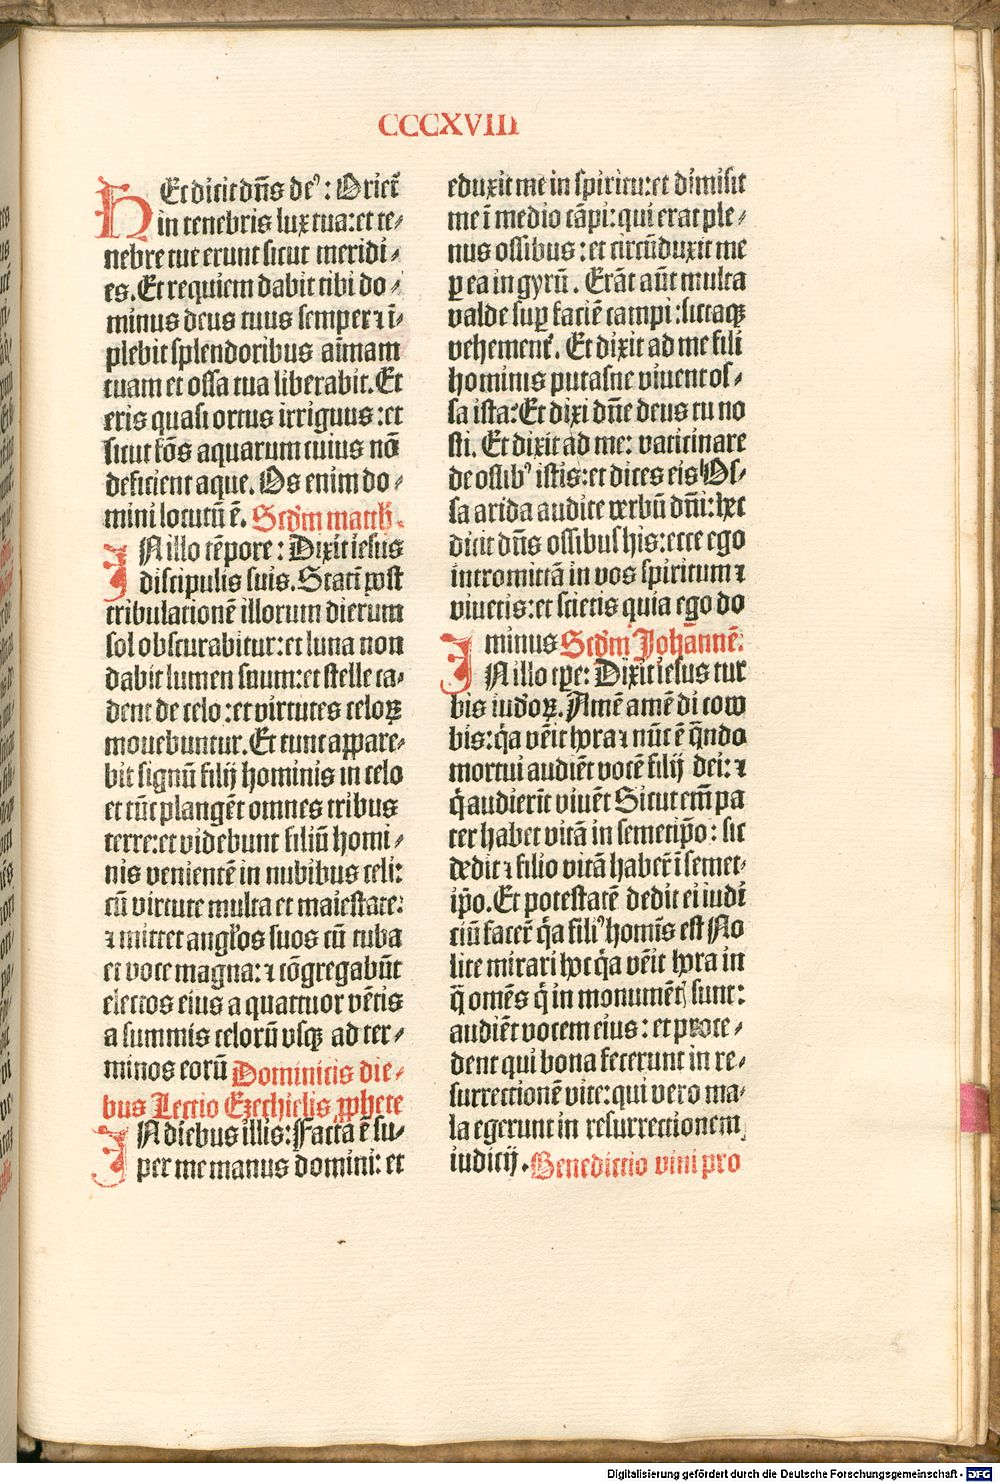 CCCXVIII
HEc dicit dn̄s deꝰ: Oriet̄
in tenebris lux tua: et te⸗
nebre tue erunt sicut meridi⸗
es. Et requiem dabit tibi do⸗
minus deus tuus semper ⁊ ī⸗
plebit splendoribus aīmam
tuam et ossa tua liberabit. Et
eris quasi ortus irriguus: et
sicut fōs aquarum cuius nō
deficient aque. Os enim do⸗
mini locutū ē. Scd̄m matth.
IN illo tēpore: Dixit iesus
discipulis suis. Statī post
tribulationē illorum dierum
sol obscurabitur: et luna non
dabit lumen suum: et stelle ca⸗
dent de celo: et virtutes celoꝝ
mouebuntur. Et tunc appare⸗
bit signū filij hominis in celo
et tūc plangēt omnes tribus
terre: et videbunt filiū homi⸗
nis venientē in nubibus celi:
cū virtute multa et maiestate:
⁊ mittet angl̄os suos cū tuba
et voce magna: ⁊ cōgregabūt
electos eius a quattuor vētis
a summis celorū vsqꝫ ad ter⸗
minos eorū Dominicis die⸗
bus Lectio Ezechielis ꝓphete
IN diebus illis: Facta ē su⸗
per me manus domini: et
eduxit me in spiritu: et dimisit
me ī medio cāpi: qui erat ple⸗
nus ossibus: et circūduxit me
ꝑ ea in gyrū. Erāt aūt multa
valde suꝑ faciē campi: siccaqꝫ
vehemēt̄. Et dixit ad me fili
hominis putasne viuent os⸗
sa ista: Et dixi dn̄e deus tu no
sti. Et dixit ad me: vaticinare
de ossibꝰ istis: et dices eis Os⸗
sa arida audite verbū dn̄i: hec
dicit dn̄s ossibus his: ecce ego
intromittā in vos spiritum ⁊
viuetis: et scietis quia ego do
minus Scd̄m Johannē:
IN illo tp̄e: Dixit iesus tur
bis iudoꝝ. Amē amē di co vo
bis: q̄a vēit hora ⁊ nūc ē q̄ndo
mortui audiēt vocē filij dei: ⁊
q̄ audierīt viuēt Sicut em̄ pa
ter habet vitā in semetip̄o: sic
dedit ⁊ filio vitā haber̄ ī semet⸗
ip̄o. Et potestatē dedit ei iudi
ciū facer̄ q̄a filiꝰ homīs est No
lite mirari hoc q̄a vēit hora in
q̄ omēs q̄ in monumēt̄ sunt:
audiēt vocem eius: et proce⸗
dent qui bona fecerunt in re⸗
surrectionē vite: qui vero ma⸗
la egerunt in resurrectionem
iudicij. Benedictio vini pro
Digitalisierung gefördert durch die Deutsche Forschungsgemeinschaft - DFG